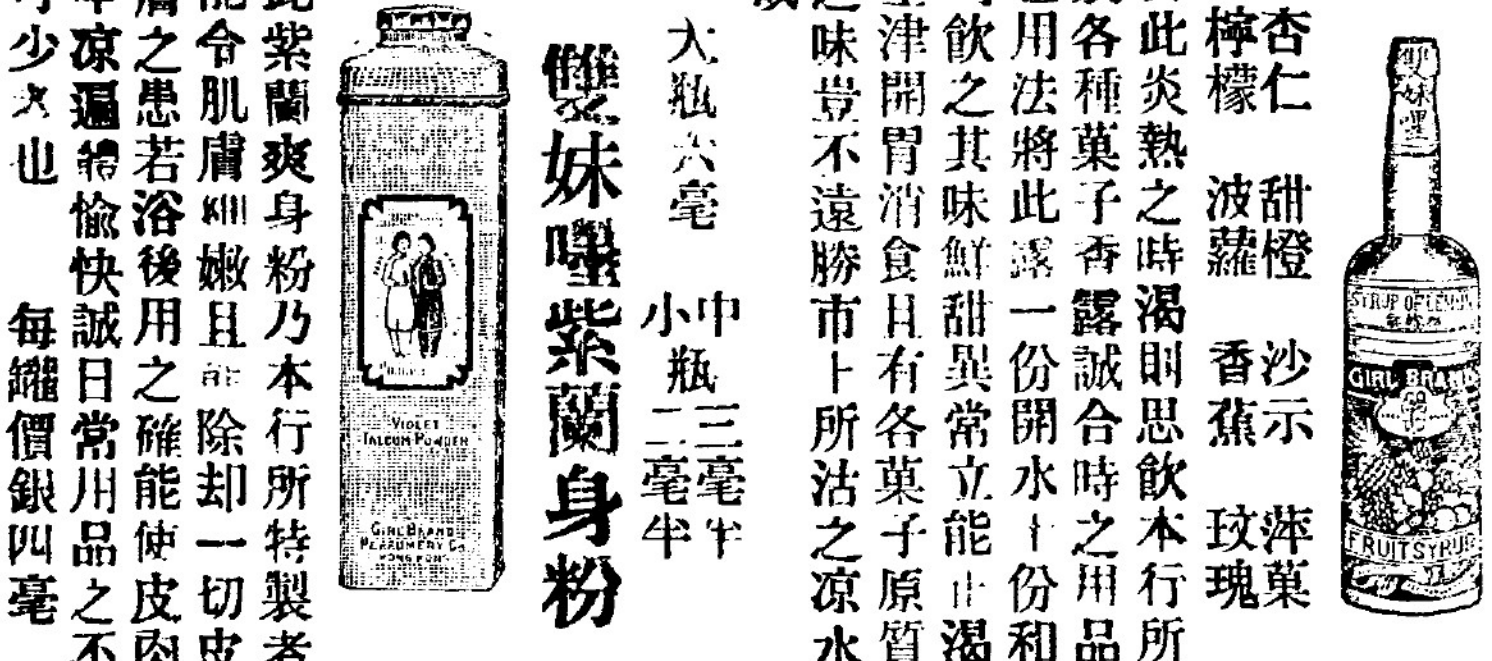 雙妹嚜
SYRUP OF LEMON
GIRL BRAND
FRUIT SYRUP
杏仁 甜橙 沙示 萍菓
檸檬 波蘿 香蕉 玫瑰
此炎熱之時渴則思飲本行所
各種菓子香露誠合時之用品
用法將此露一份開水十份和
飲之其味鮮甜異常立能止渴
津開胃消食且有各菓子原質
之味豈不遠勝市上所沽之凉水
大瓶六毫 中瓶三毫半
小瓶二毫半
雙妹嚜紫蘭身粉
VIOLET
TALCUM POWDER
GIRL BRAND
PERFUMERY Co
HONG KONG
此紫蘭爽身粉乃本行所特製者
能令肌膚細嫩且能除却一切皮
膚之患若浴後用之確能使皮肉
凉遍體愉快誠日常用品之不
少也 每罐價銀四毫